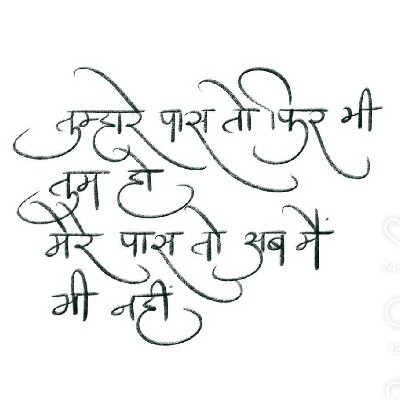 तुम्हारे पास तो फिर भी
तुम हो
मेरे पास तो अब मैं
भी नहीं